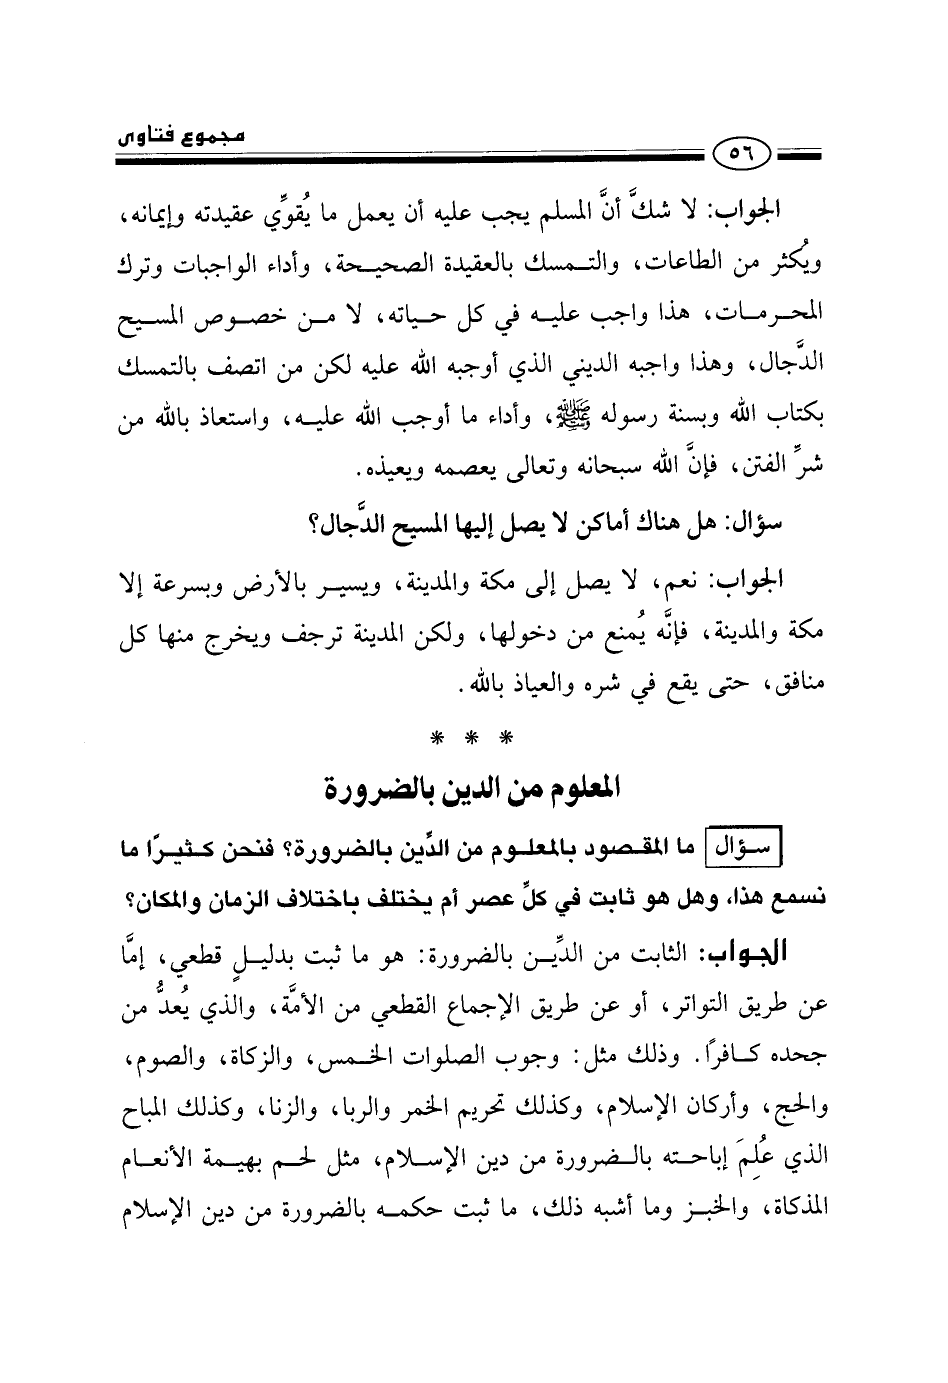 مجموع فتاوى
٥٦
الجواب: لا شكَّ أنَّ المسلم يجب عليه أن يعمل ما يُقوِّي عقيدته وإيمانه،
ويُكثر من الطاعات، والتمسك بالعقيدة الصحيحة، وأداء الواجبات وترك
المحرمات، هذا واجب عليه في كل حياته، لا من خصوص المسيح
الدَّجال، وهذا واجبه الديني الذي أوجبه الله عليه لكن من اتصف بالتمسك
بكتاب الله وبسنة رسوله ﷺ، وأداء ما أوجب الله عليه، واستعاذ بالله من
شرِّ الفتن، فإنَّ الله سبحانه وتعالى يعصمه ويعيذه.
سؤال: هل هناك أماكن لا يصل إليها المسيح الدَّجال؟
الجواب: نعم، لا يصل إلى مكة والمدينة، ويسير بالأرض وبسرعة إلا
مكة والمدينة، فإنَّه يُمنع من دخولها، ولكن المدينة ترجف ويخرج منها كل
منافق، حتى يقع في شره والعياذ بالله.
* * *
المعلوم من الدين بالضرورة
سؤال ما المقصود بالمعلوم من الدِّين بالضرورة؟ فنحن كثيرًا ما
نسمع هذا، وهل هو ثابت في كلِّ عصر أم يختلف باختلاف الزمان والمكان؟
الجواب: الثابت من الدِّين بالضرورة: هو ما ثبت بدليلٍ قطعي، إمَّا
عن طريق التواتر، أو عن طريق الإجماع القطعي من الأمَّة، والذي يُعدُّ من
جحده كافرًا. وذلك مثل: وجوب الصلوات الخمس، والزكاة، والصوم،
والحج، وأركان الإسلام، وكذلك تحريم الخمر والربا، والزنا، وكذلك المباح
الذي عُلِمَ إباحته بالضرورة من دين الإسلام، مثل لحم بهيمة الأنعام
المذكاة، والخبز وما أشبه ذلك، ما ثبت حكمه بالضرورة من دين الإسلام